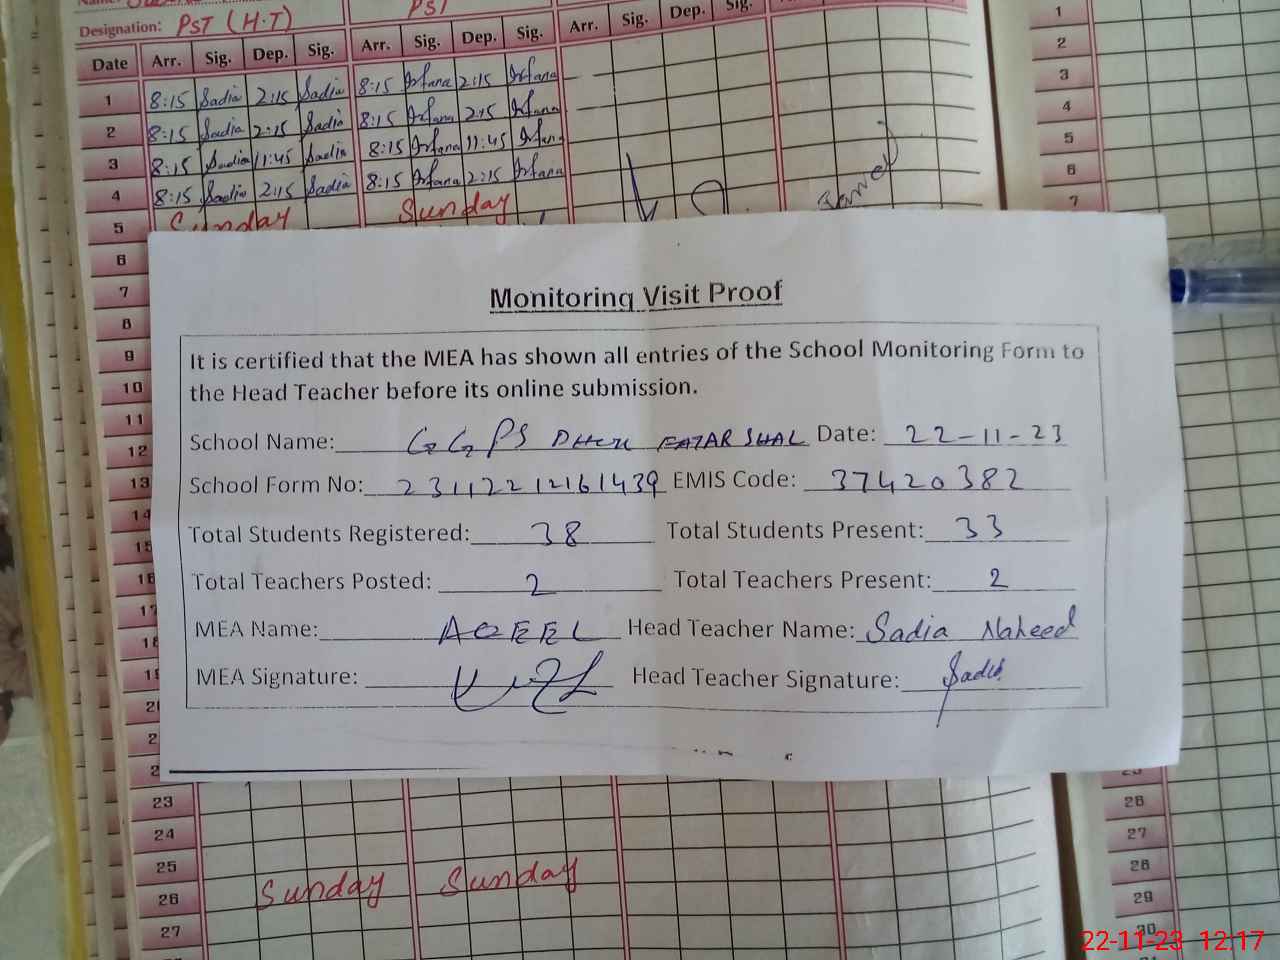 Designation: PST (H.T) PST
Date Arr. Sig. Dep. Sig. Arr. Sig. Dep. Sig. Arr. Sig. Dep. Sig.
1 8:15 Sadia 2:15 Sadia 8:15 Irfana 2:15 Irfana
2 8:15 Sadia 2:15 Sadia 8:15 Irfana 2:15 Irfana
3 8:15 Sadia 11:45 Sadia 8:15 Irfana 11:45 Irfana
4 8:15 Sadia 2:15 Sadia 8:15 Irfana 2:15 Irfana
5 Sunday Sunday
6
7
8
9
10
11
12
13
14
15
16
17
18
19
Monitoring Visit Proof
It is certified that the MEA has shown all entries of the School Monitoring Form to
the Head Teacher before its online submission.
School Name: GGPS DHOK Date: 22-11-23
School Form No: 23112212161439 EMIS Code: 37420382
Total Students Registered: 38 Total Students Present: 33
Total Teachers Posted: 2 Total Teachers Present: 2
MEA Name: AQEEL Head Teacher Name: Sadia Naheed
MEA Signature: Head Teacher Signature: Sadia
23
24
25
26 Sunday Sunday
27
1
2
3
4
5
6
7
26
27
28
29
30
22-11-23 12:17